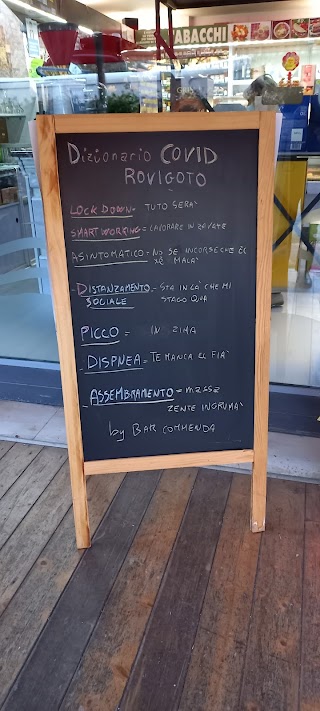 TABACCHI
Dizionario COVID
ROVIGOTO
LOCK DOWN= TUTO SERÀ
SMART WORKING= LAVORARE IN ZAVATE
ASINTOMATICO - NO SE INCORSE CHE EL
XE MALÀ
- DISTANZAMENTO - STA IN LÀ CHE MI
SOCIALE STAGO QUA
PICCO = IN ZIMA
- DISPNEA = TE MANCA EL FIÀ
- ASSEMBRAMENTO = MASSA
ZENTE INGRUMÀ
by BAR COMMENDA